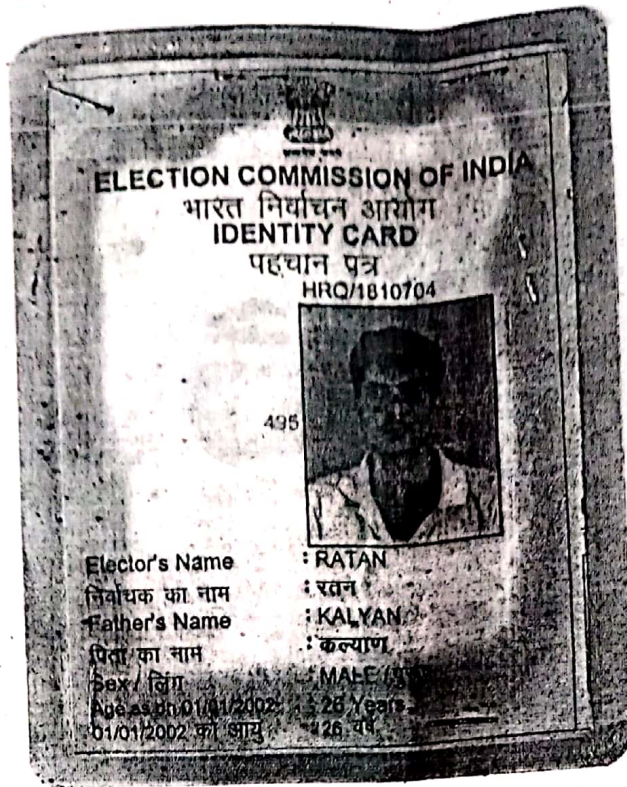 ELECTION COMMISSION OF INDIA
भारत निर्वाचन आयोग
IDENTITY CARD
पहचान पत्र
HRQ/1810704
495
Elector's Name : RATAN
निर्वाचक का नाम : रतन
Father's Name : KALYAN
पिता का नाम : कल्याण
Sex / लिंग : MALE /
Age as on 01/01/2002 : 26 Years
01/01/2002 को आयु : 26 वर्ष